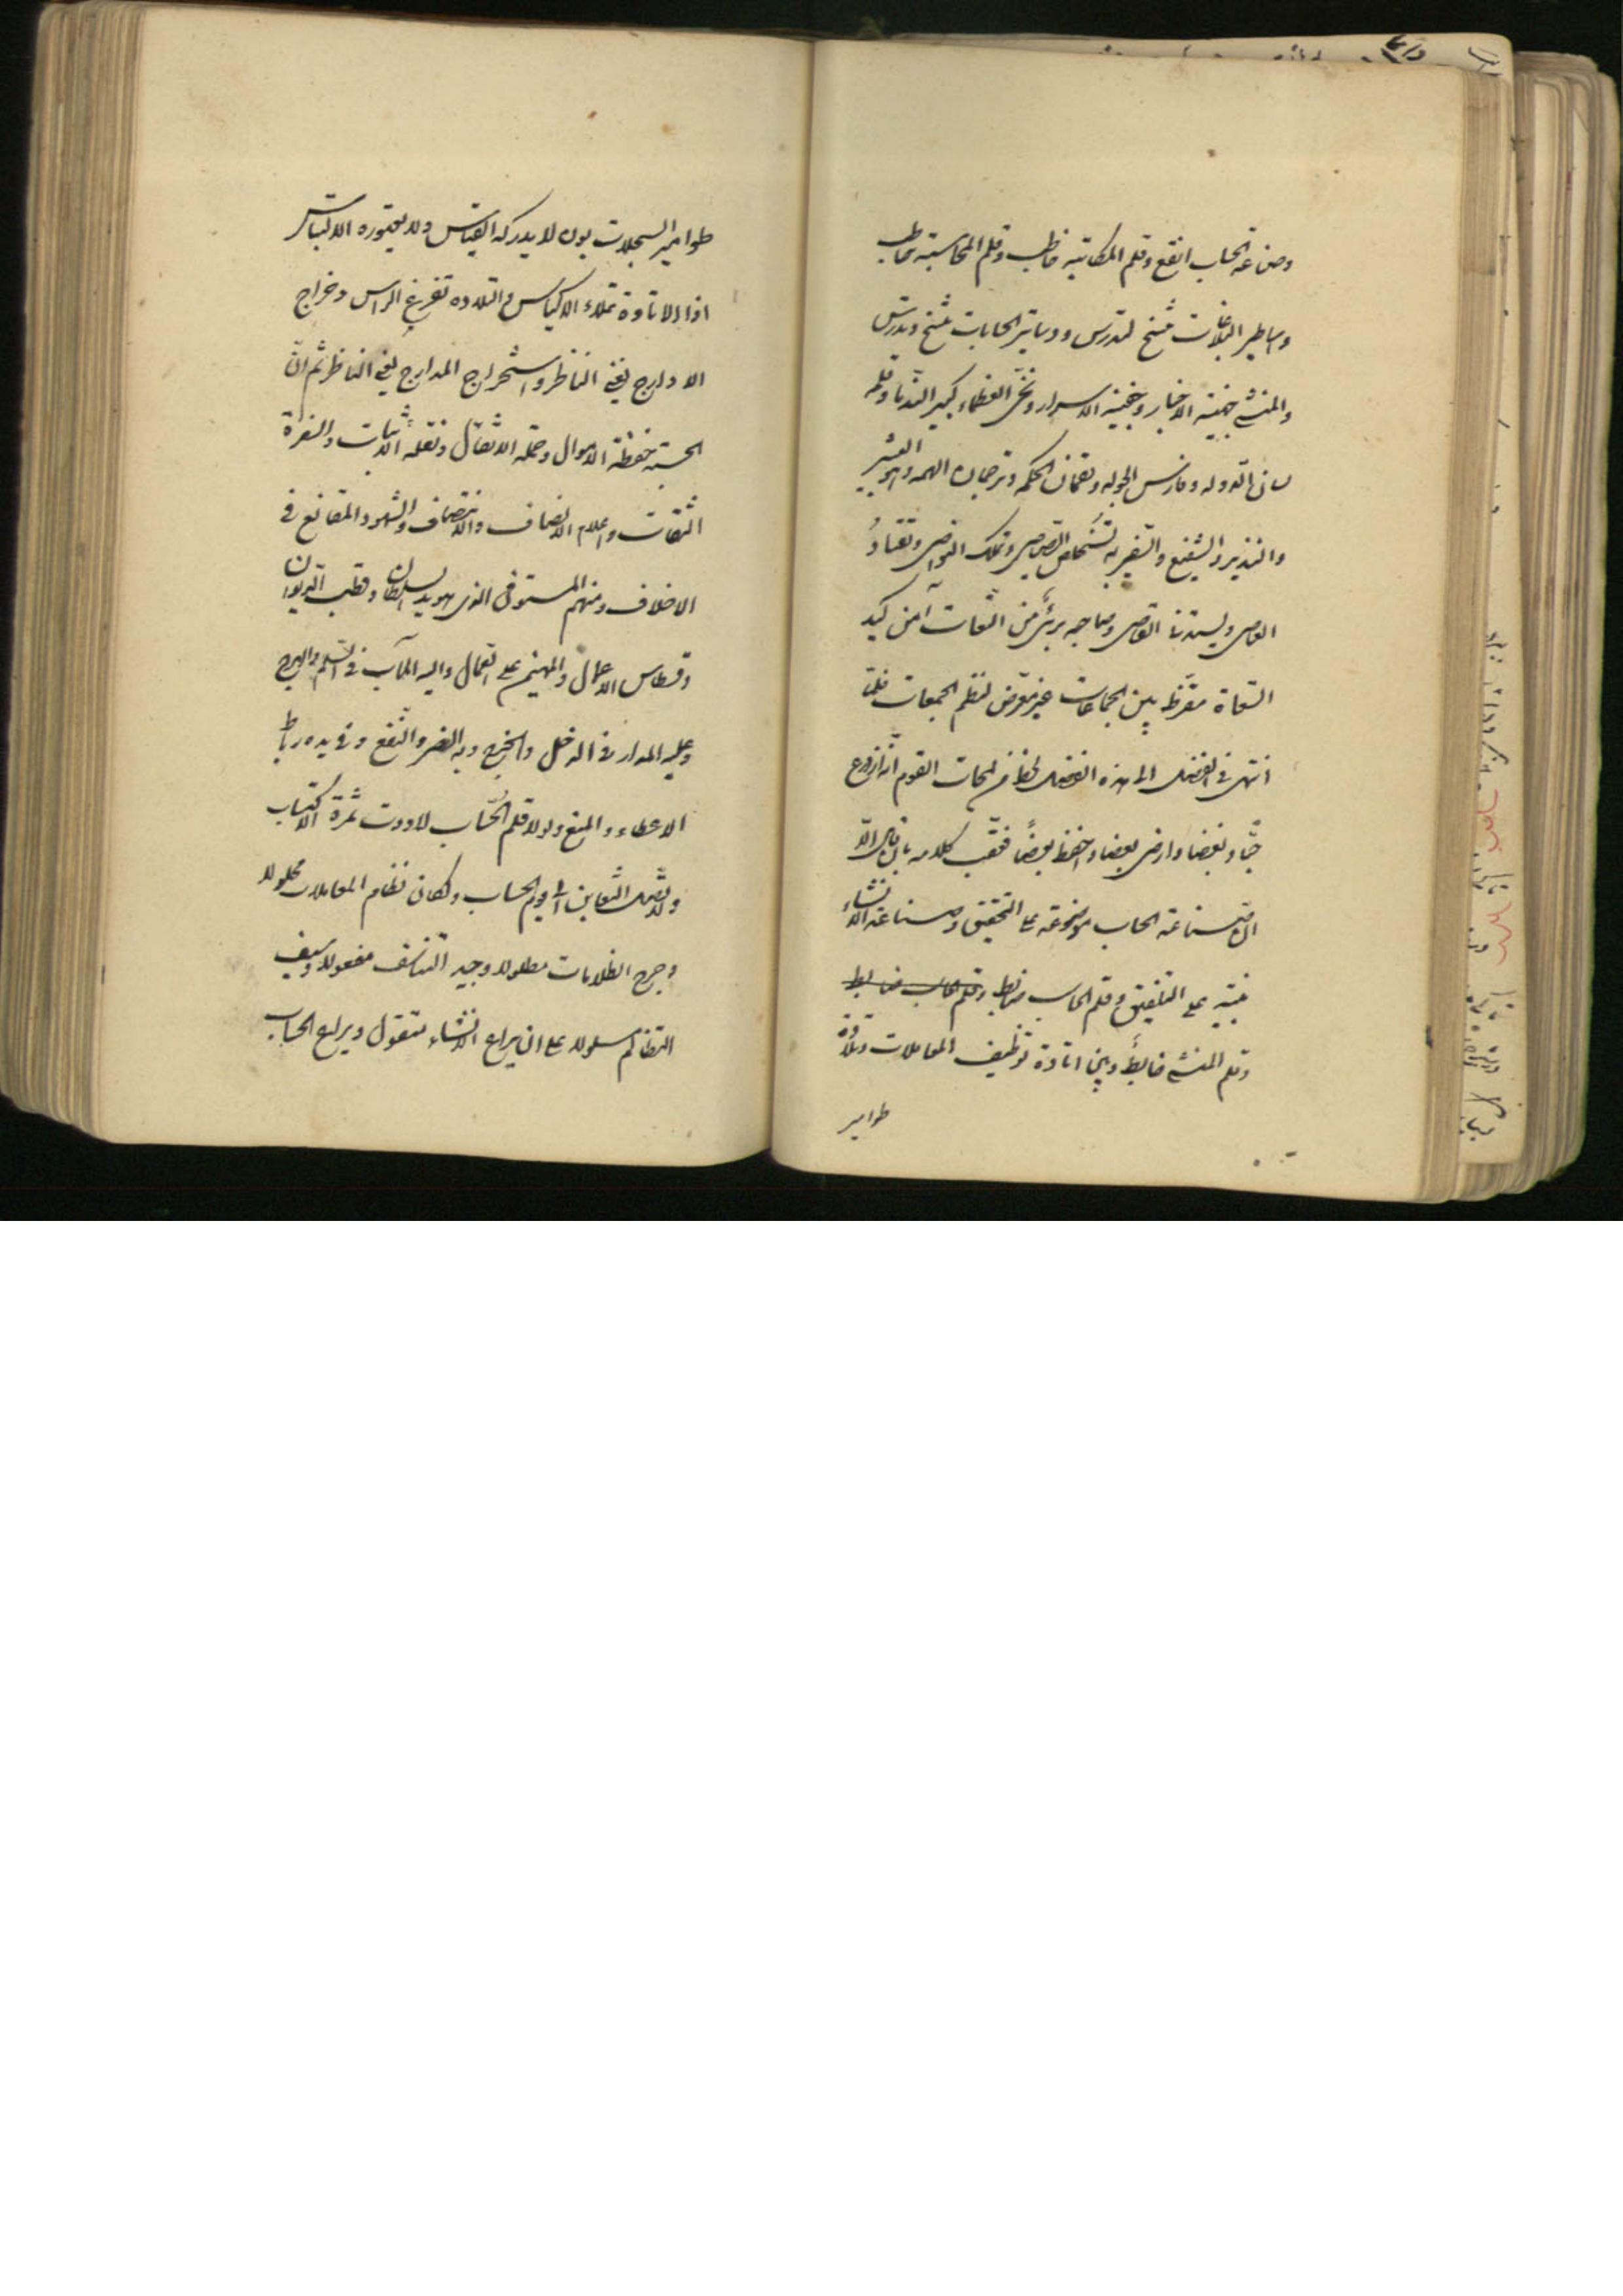 وصناعة الحساب انفع وقلم المكاتبة خاطب وقلم المحاسبة حاطب
واساطير البلاغات تنسخ لتدرس ودساتير الحسابات تنسخ وتدرس
والمنشئ جهينة الاخبار وحقيبة الاسرار ونجى العظماء وكبير الندماء وقلمه
لسان الدولة وفارس الجولة ولقمان الحكمة وترجمان الهمة وهو البشير
والنذير والشفيع والسفير به تستخلص الصياصى وتملك النواصى ويقتاد
العاصى ويستدنى القاصى وصاحبه برئ من التبعات آمن كيد
السعاة مقرظ بين الجماعات غير معرض لنظم الجماعات فلما
انتهى فى الفصل الى هذه الفصل لحظ من لمحات القوم انه ازدرع
حبا وبغضا وارضى بعضا واحفظ بعضا فعقب كلامه بان قال الا
ان صناعة الحساب موضوعة على التحقيق وصناعة الانشاء
مبنية على التلفيق وقلم الحاسب ضابط
وقلم المنشئ خابط وبين اتاوة توظيف المعاملات وتلاوة
طوامير
طوامير السجلات بون لا يدركه القياس ولا يعتوره الالتباس
اذ الاتاوة تملاء الاكياس والتلاوة تفرغ الراس وخراج
الاوارج يغنى الناظر واستخراج المدارج يعنى الناظر ثم ان
الحسبة حفظة الاموال وحملة الاثقال ونقلة الاثبات والسفرة
الثقات واعلام الانصاف والانتصاف والشهود المقانع فى
الاختلاف ومنهم المستوفى الذى هو يد السلطان وقطب الديوان
وقسطاس الاعمال والمهيمن على العمال واليه المآب فى السلم والهرج
وعليه المدار فى الدخل والخرج وبه الضر والنفع وفى يده رباط
الاعطاء والمنع ولولا قلم الحساب لاودت ثمرة الاكتساب
ولاتصل التغابن الى يوم الحساب ولكان نظام المعاملات محلولا
وجرح الظلامات مطلولا وجيد التناصف مغلولا وسيف
التظالم مسلولا على ان يراع الانشاء متقول ويراع الحساب